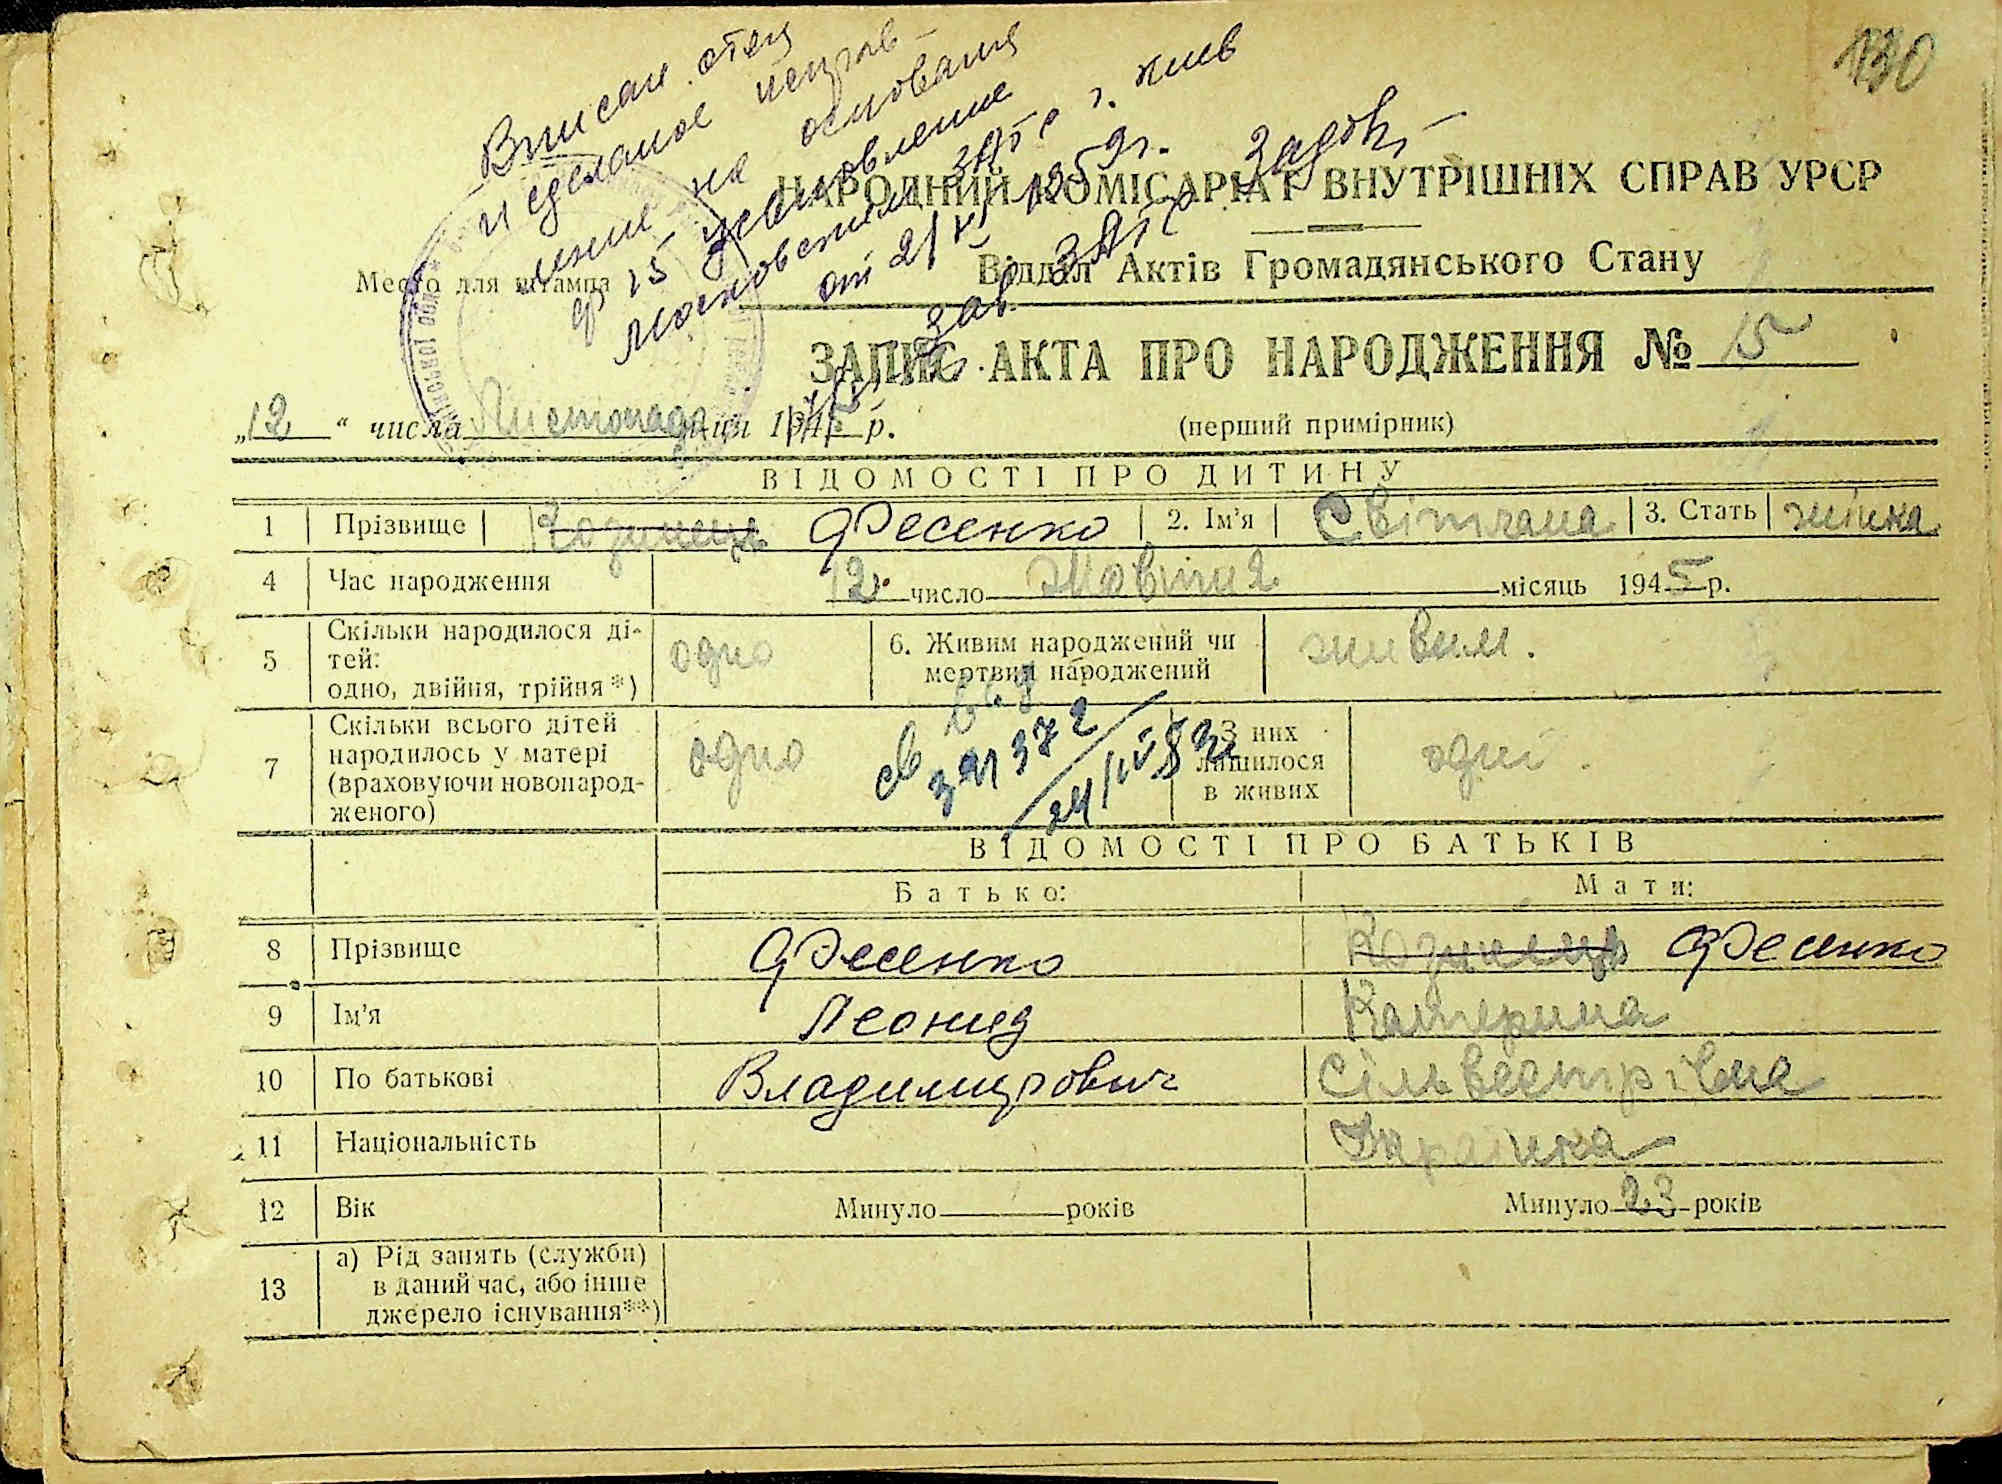 130
Вписан отец
и сделаное исправ-
ление на основания
ф 15 установление
Московский ЗАГС г. Киев
от 21/VI 1959г.
Зав. ЗАГС
НАРОДНИЙ КОМІСАРІАТ ВНУТРІШНІХ СПРАВ УРСР
Место для штампа
Відділ Актів Громадянського Стану
ЗАПИС АКТА ПРО НАРОДЖЕННЯ № 15
„12“ числа Листопада м-ця 1945 р.
(перший примірник)
ВІДОМОСТІ ПРО ДИТИНУ
1 Прізвище Фесенко 2. Ім'я Світлана 3. Стать жінка
4 Час народження 12 число Жовтня місяць 1945 р.
5 Скільки народилося ді-
тей:
одно, двійня, трійня*) одно
6. Живим народжений чи
мертвим народжений живим.
7 Скільки всього дітей
народилось у матері
(враховуючи новонарод-
женого) одно
З них
лишилося
в живих одні.
св
391372
ВІДОМОСТІ ПРО БАТЬКІВ
Батько: Мати:
8 Прізвище Фесенко Козинець Фесенко
9 Ім'я Леонид Катерина
10 По батькові Владимирович Сільвестрівна
11 Національність Українка
12 Вік Минуло ____ років Минуло 23 років
13 а) Рід занять (служби)
в даний час, або інше
джерело існування**)